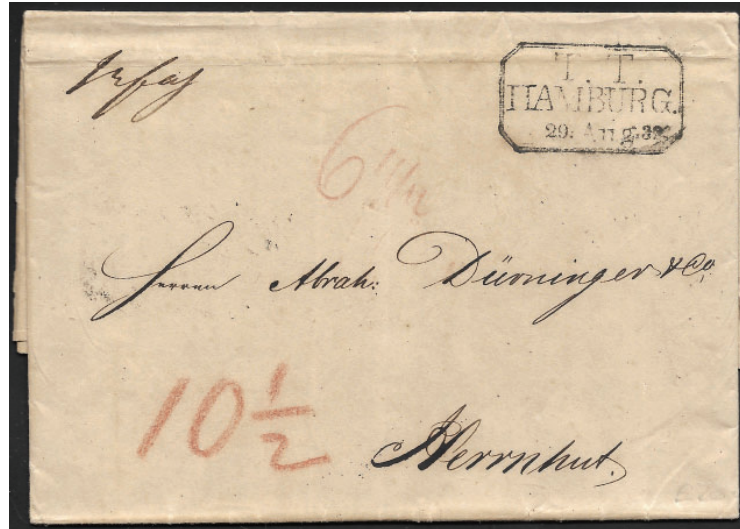 T. T.
HAMBURG.
29. Aug. 38
6
Herren Abrah: Dürninger & Co,
10 1/2
Herrnhut.